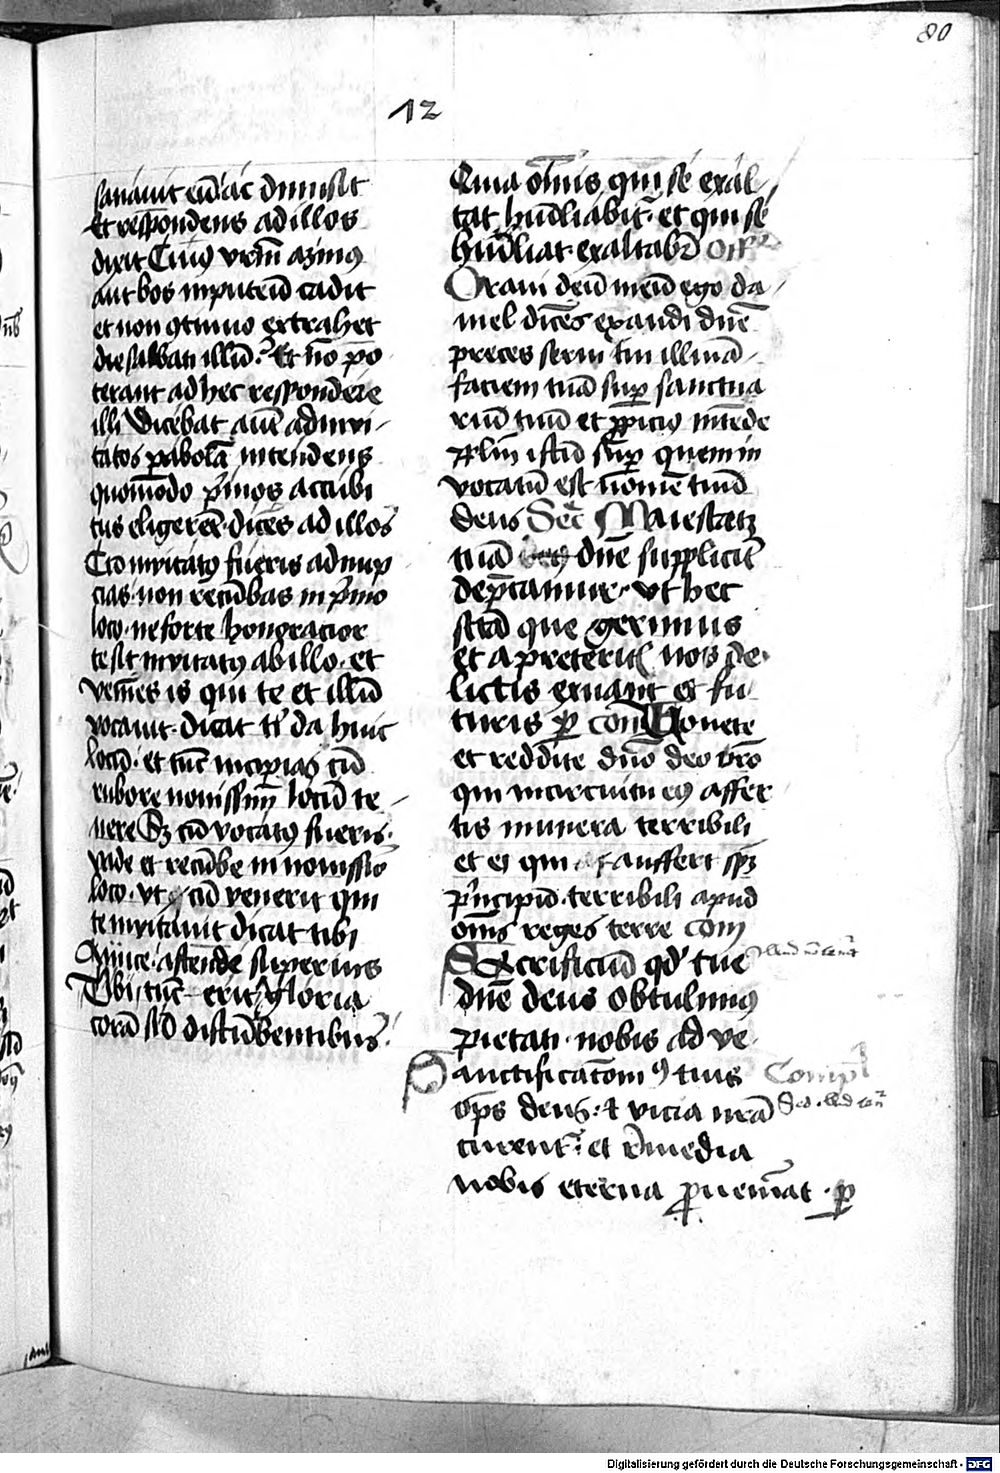 80
12
sanavit eū ac dimisit
Et respondens ad illos
dixit Cuiꝰ vr̄m asinus
aut bos in puteū cadit
et non ꝯtinuo extrahet
die sabbati illū? Et nō po
terant ad hec respondere
illi Dicebat autē ad invi-
tatos pabolā intendens
quomōdo p̄mos accubi
tus eligerēt dicēs ad illos
Cū invitatꝰ fueris ad nup
cias non recūbas in p̄mo
loco ne forte honoracior
te sit invitatꝰ ab illo et
veniēs is qui te et illū
vocavit dicat ti da huic
locū et tūc incipias cū
rubore novissimū locū te-
nere Sꝫ cū vocatꝰ fueris
vade et recūbe in novissīo
loco ut cū venerit qui
te invitavit dicat tibi
Amice ascende superius
Tibi tūc erit gloria
corā sil'd discūbentibus
Quia om̄is qui se exal-
tat hūiliabit̄ et qui se
hūiliat exaltabr̄ Off
Oravi deū meū ego da-
niel dicēs exaudi dn̄e
preces servi tui illuīa-
faciem tuā suꝑ sanctua
riū tuū et ꝓpiciꝰ intēde
plm̄ istū suꝑ quem in
vocatū est nōmē tuū
deus Sec̄ Maiestatē
tuā dn̄e suppliciter
dep̄camur ut hec
sc̄ta que gerimus
et a preteritꝭ nos de
lictis exuant et fu
turis ꝑ Com̄ Vovete
et reddite dn̄o deo vr̄o
qui in circuitu eiꝰ affer
tis munera terribili
et ei qui auffert spm̄
p̄ncipū terribili apud
om̄s reges terre Com̄
Sacrificiū qd tue
dn̄e deus obtulimꝰ
pietati nobis ad ve
Sanctificatōnibꝰ tuis Compl
op̄s deus et vicia nr̄a
curent̄ et remedia
nobis eterna ꝓveniāt ꝑ
Digitalisierung gefördert durch die Deutsche Forschungsgemeinschaft - DFG